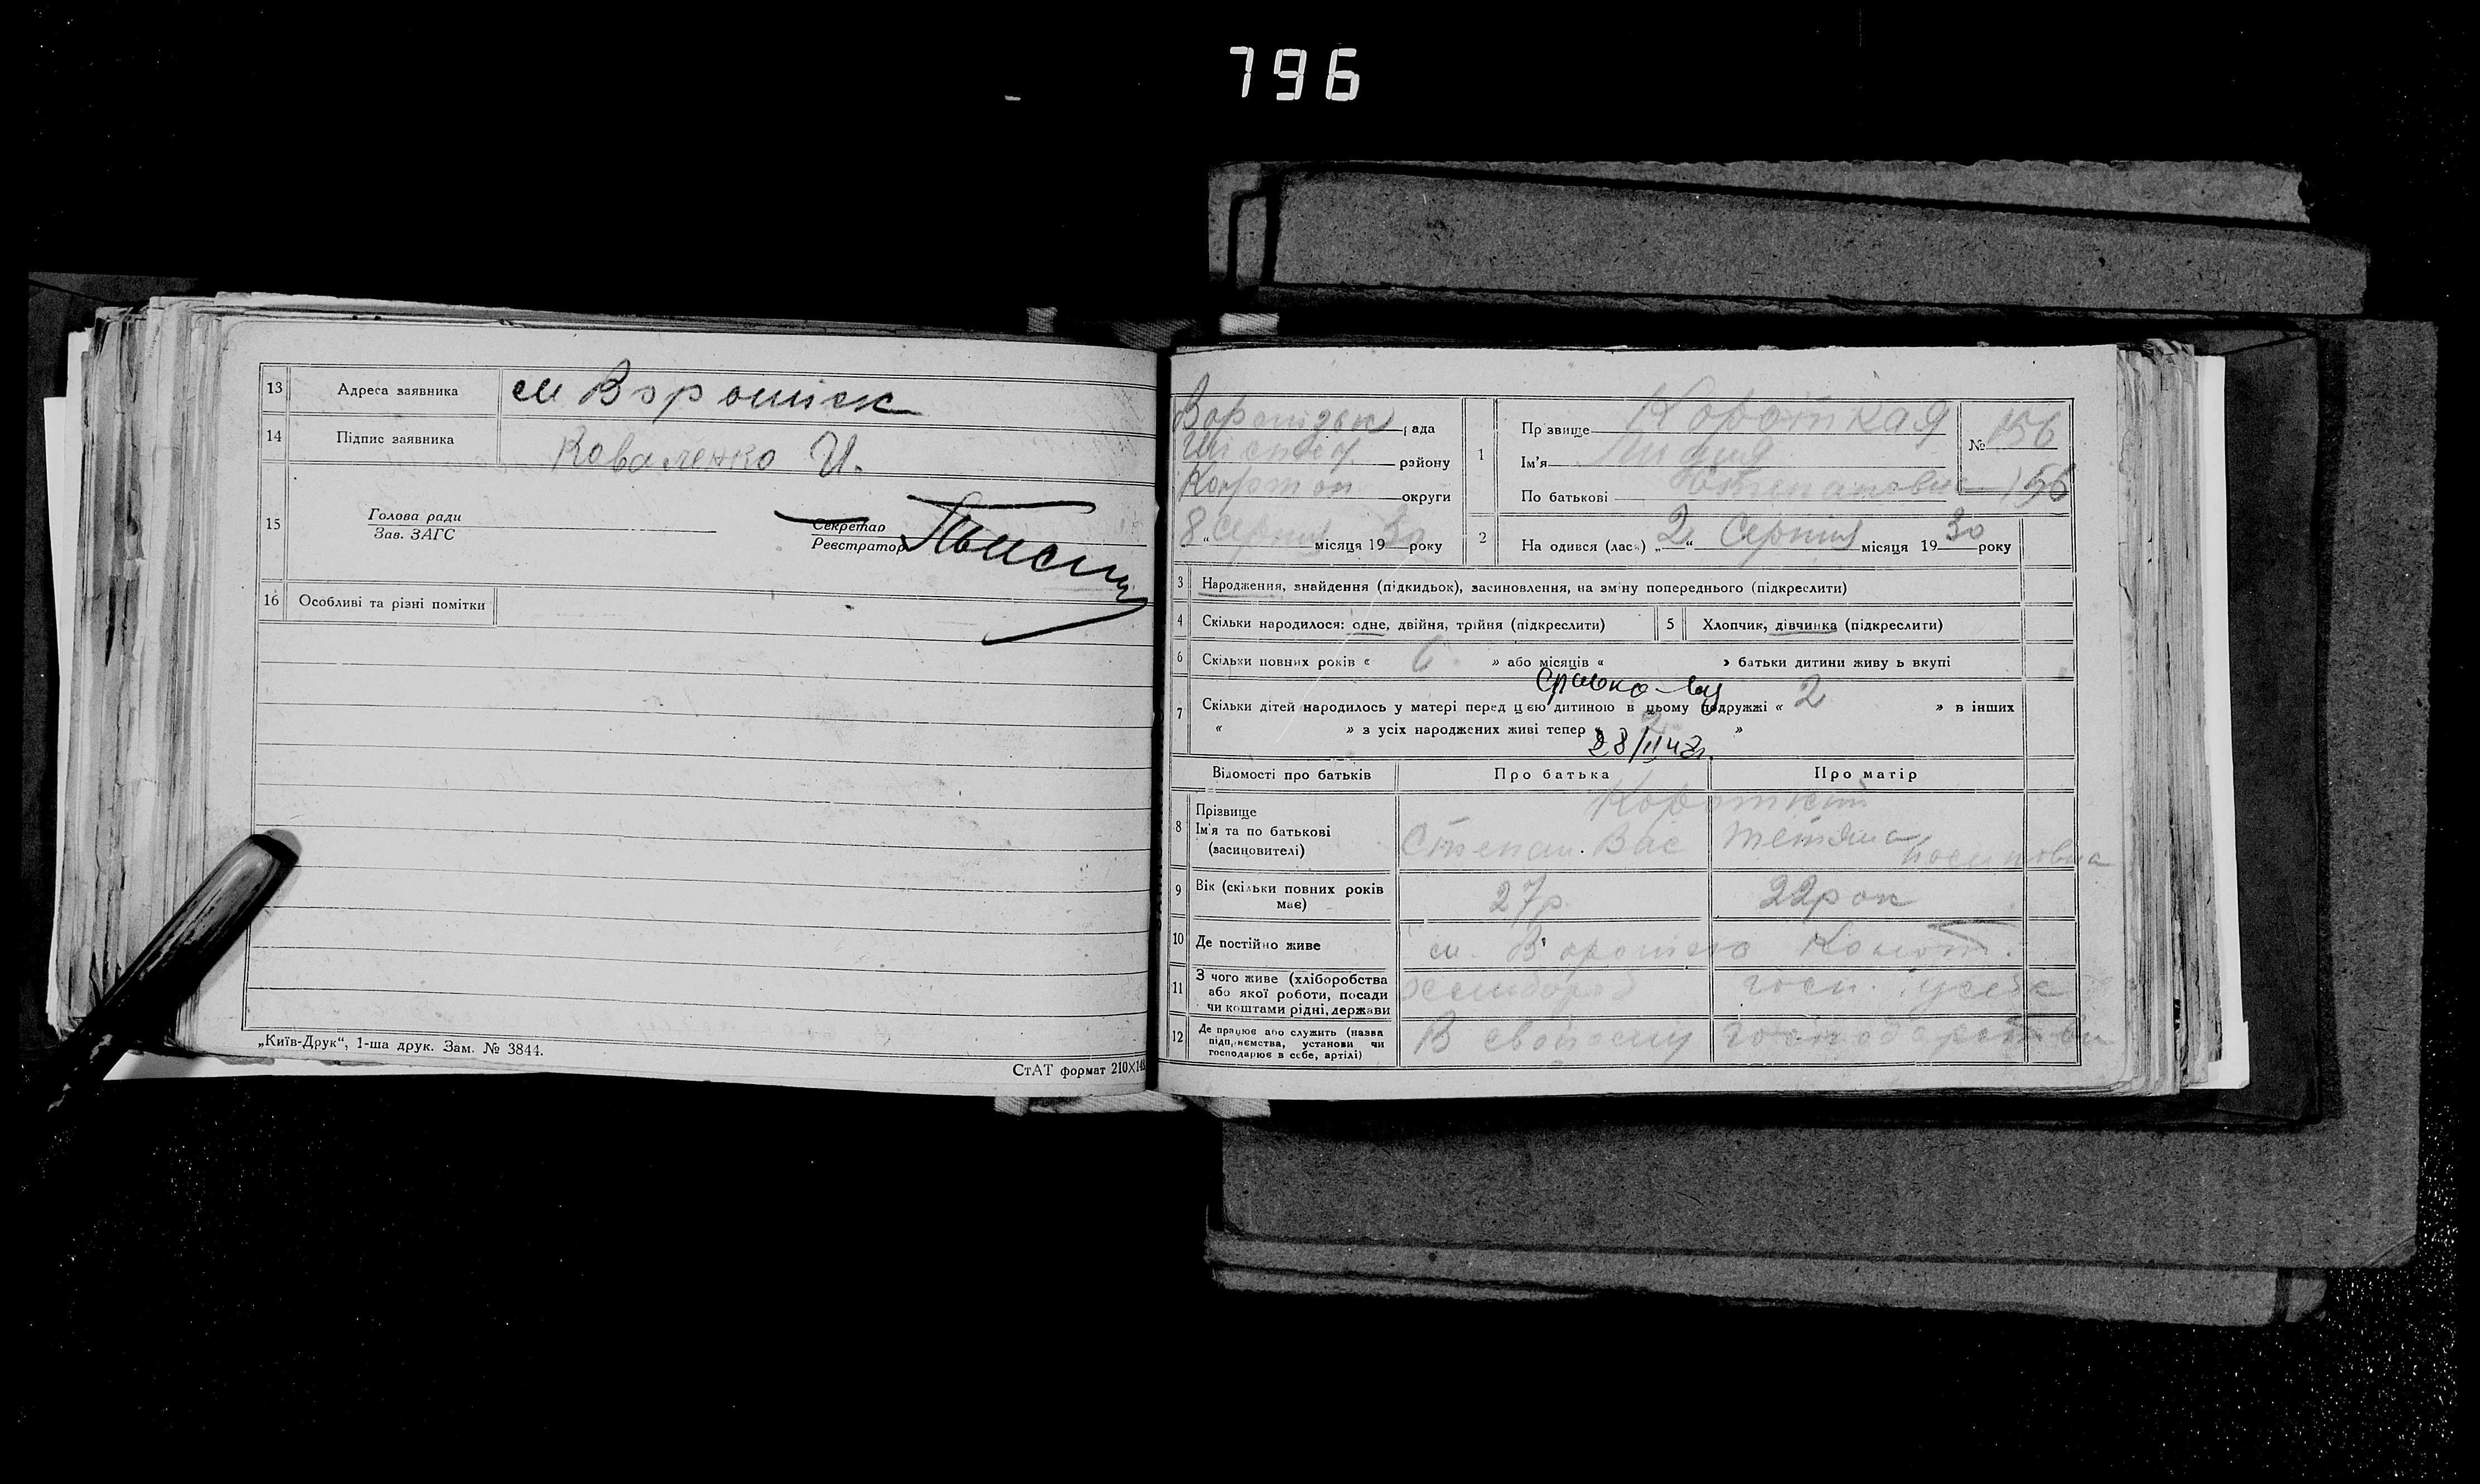 796
13 Адреса заявника см Вороніж
14 Підпис заявника Коваленко И.
15 Голова ради
Зав. ЗАГС
Секретар
Реєстратор
16 Особливі та різні помітки
„Київ-Друк“, 1-ша друк. Зам. № 3844.
СтАТ формат 210×148
рада
району
округи
8 „ Серпня місяця 1930 року
1 Прізвище Короткая
Ім'я Лидия
По батькові Степановна
№ 156
156
2 На одився (лась) „2“ Серпня місяця 1930 року
3 Народження, знайдення (підкидьок), засиновлення, на зміну попереднього (підкреслити)
4 Скільки народилося: одне, двійня, трійня (підкреслити)
5 Хлопчик, дівчинка (підкреслити)
6 Скільки повних років « 6 » або місяців « » батьки дитини живу ь вкупі
7 Скільки дітей народилось у матері перед цією дитиною в цьому подружжі « 2 » в інших
« » з усіх народжених живі тепер « 2 »
28/II 42.
Відомості про батьків Про батька Про матір
8 Прізвище
Ім'я та по батькові
(засиновителі)
Короткий
Степан Вас Тетяна
9 Вік (скільки повних років
має)
27р. 22рок
10 Де постійно живе
см.
11 З чого живе (хліборобства
або якої роботи, посади
чи коштами рідні, держави
хлибороб госп.
12 Де працює або служить (назва
підприємства, установи чи
господарює в себе, артілі)
В своіому господарстви